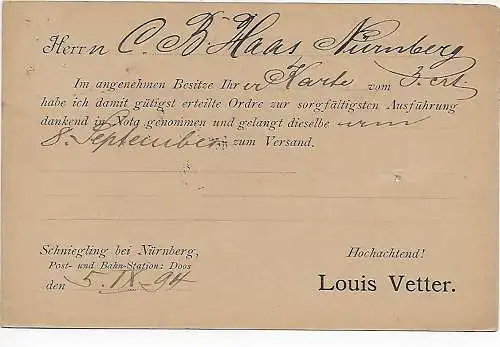 Herrn C. B. Haas Nürnberg
Im angenehmen Besitze Ihrer Karte vom 3. crt.
habe ich damit gütigst erteilte Ordre zur sorgfältigsten Ausführung
dankend in Nota genommen und gelangt dieselbe um
8. September zum Versand.
Schniegling bei Nürnberg,
Post- und Bahn-Station: Doos
den 5. IX. 94
Hochachtend!
Louis Vetter.